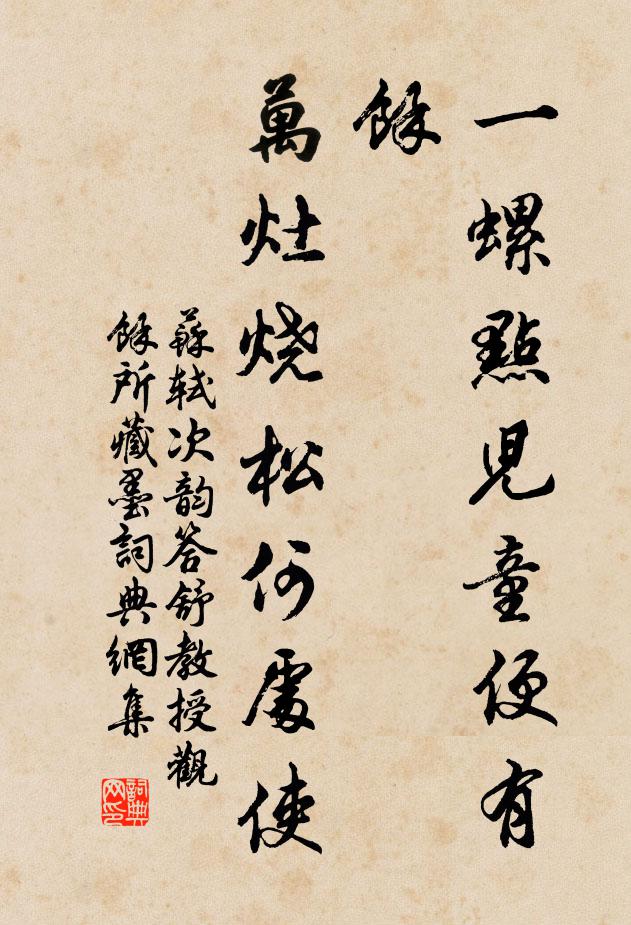 一螺點兒童便有
餘
萬灶燒松何處使
蘇軾次韵答舒教授觀
餘所藏墨詞典網集
詞典网印